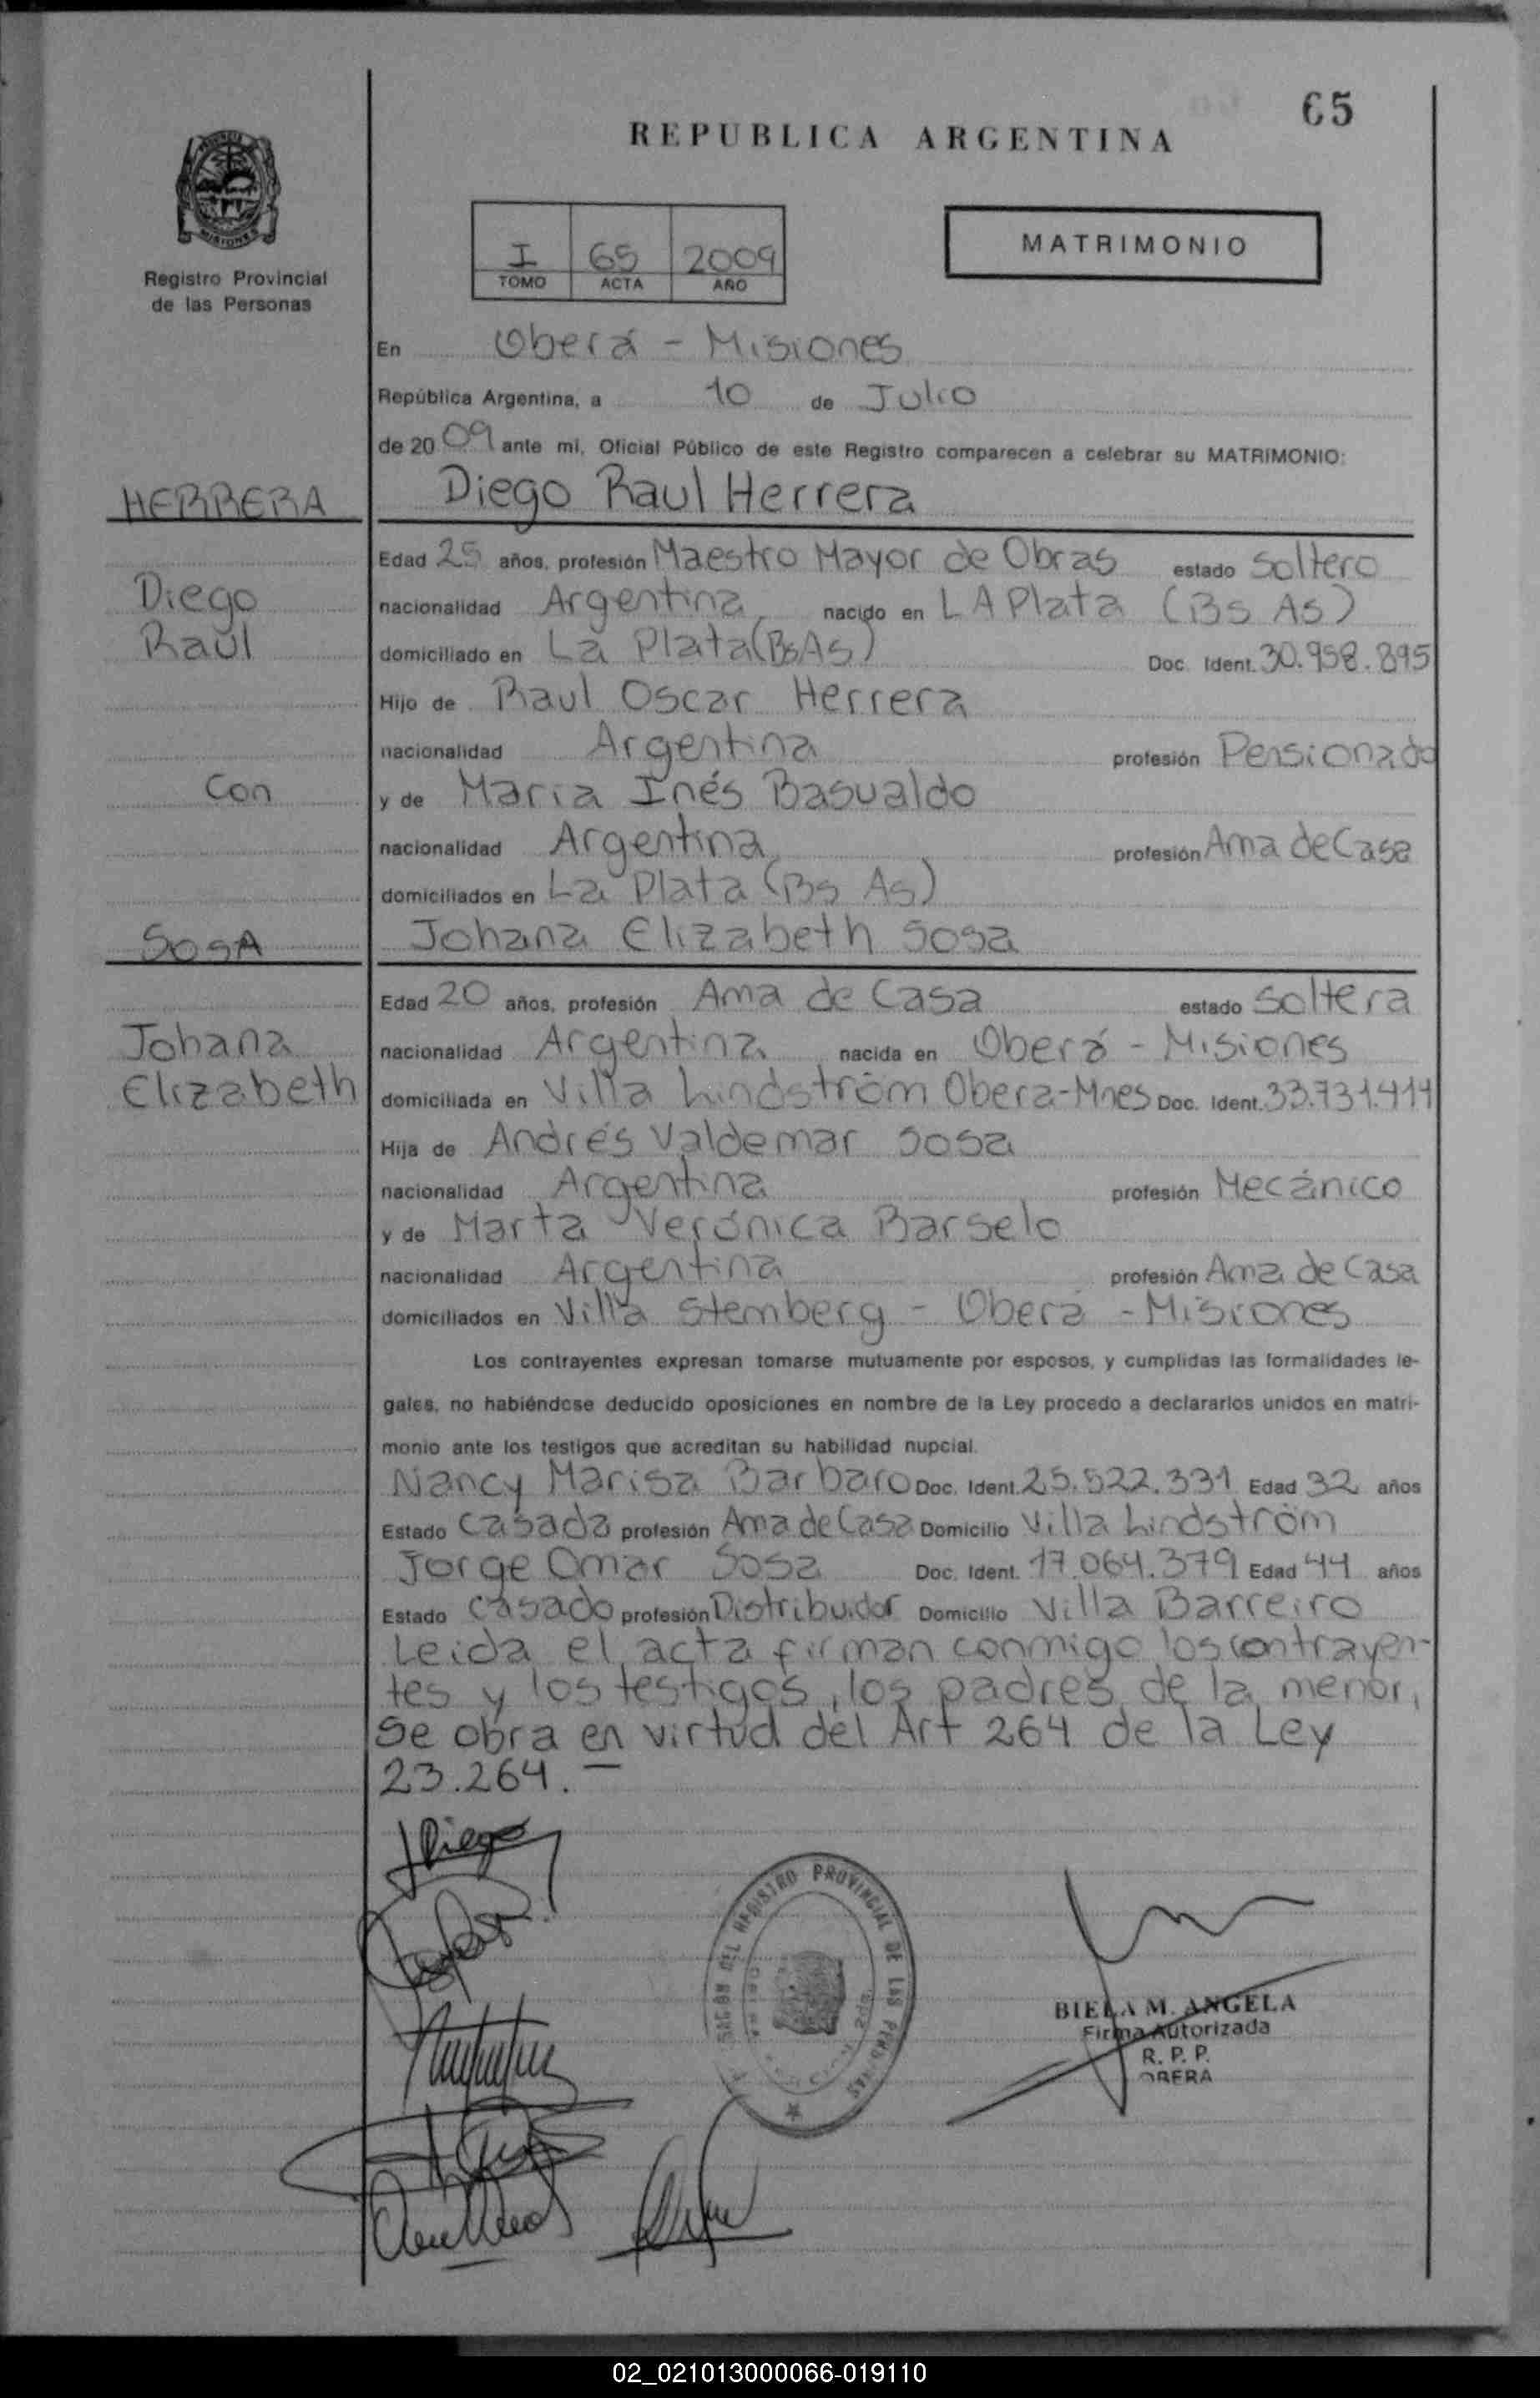 65
REPUBLICA ARGENTINA
MISIONES
Registro Provincial
de las Personas
I 65 2009
TOMO ACTA AÑO
MATRIMONIO
En Oberá - Misiones
República Argentina, a 10 de Julio
de 2009 ante mi, Oficial Público de este Registro comparecen a celebrar su MATRIMONIO:
HERRERA Diego Raul Herrera
Edad 25 años, profesión Maestro Mayor de Obras estado Soltero
Diego nacionalidad Argentina nacido en LA Plata (Bs As)
Raúl domiciliado en La Plata (Bs As) Doc. Ident. 30.958.895
Hijo de Raul Oscar Herrera
nacionalidad Argentina profesión Pensionado
Con y de Maria Inés Basualdo
nacionalidad Argentina profesión Ama de Casa
domiciliados en La Plata (Bs As)
SOSA Johana Elizabeth Sosa
Edad 20 años, profesión Ama de Casa estado Soltera
Johana nacionalidad Argentina nacida en Oberá - Misiones
Elizabeth domiciliada en Villa Lindström Obera-Mnes Doc. Ident. 33.731.414
Hija de Andrés Valdemar Sosa
nacionalidad Argentina profesión Mecánico
y de Marta Verónica Barselo
nacionalidad Argentina profesión Ama de Casa
domiciliados en Villa Stemberg - Oberá - Misiones
Los contrayentes expresan tomarse mutuamente por esposos, y cumplidas las formalidades le-
gales, no habiéndose deducido oposiciones en nombre de la Ley procedo a declararlos unidos en matri-
monio ante los testigos que acreditan su habilidad nupcial.
Nancy Marisa Barbaro Doc. Ident. 25.522.331 Edad 32 años
Estado Casada profesión Ama de Casa Domicilio Villa Lindström
Jorge Omar Sosa Doc. Ident. 17.064.379 Edad 44 años
Estado Casado profesión Distribuidor Domicilio Villa Barreiro
Leida el acta firman conmigo los contrayen-
tes y los testigos, los padres de la menor,
Se obra en virtud del Art 264 de la Ley
23.264.—
Diego
DEL REGISTRO PROVINCIAL DE LAS PERSONAS
BIELA M. ANGELA
Firma Autorizada
R. P. P.
OBERA
02_021013000066-019110